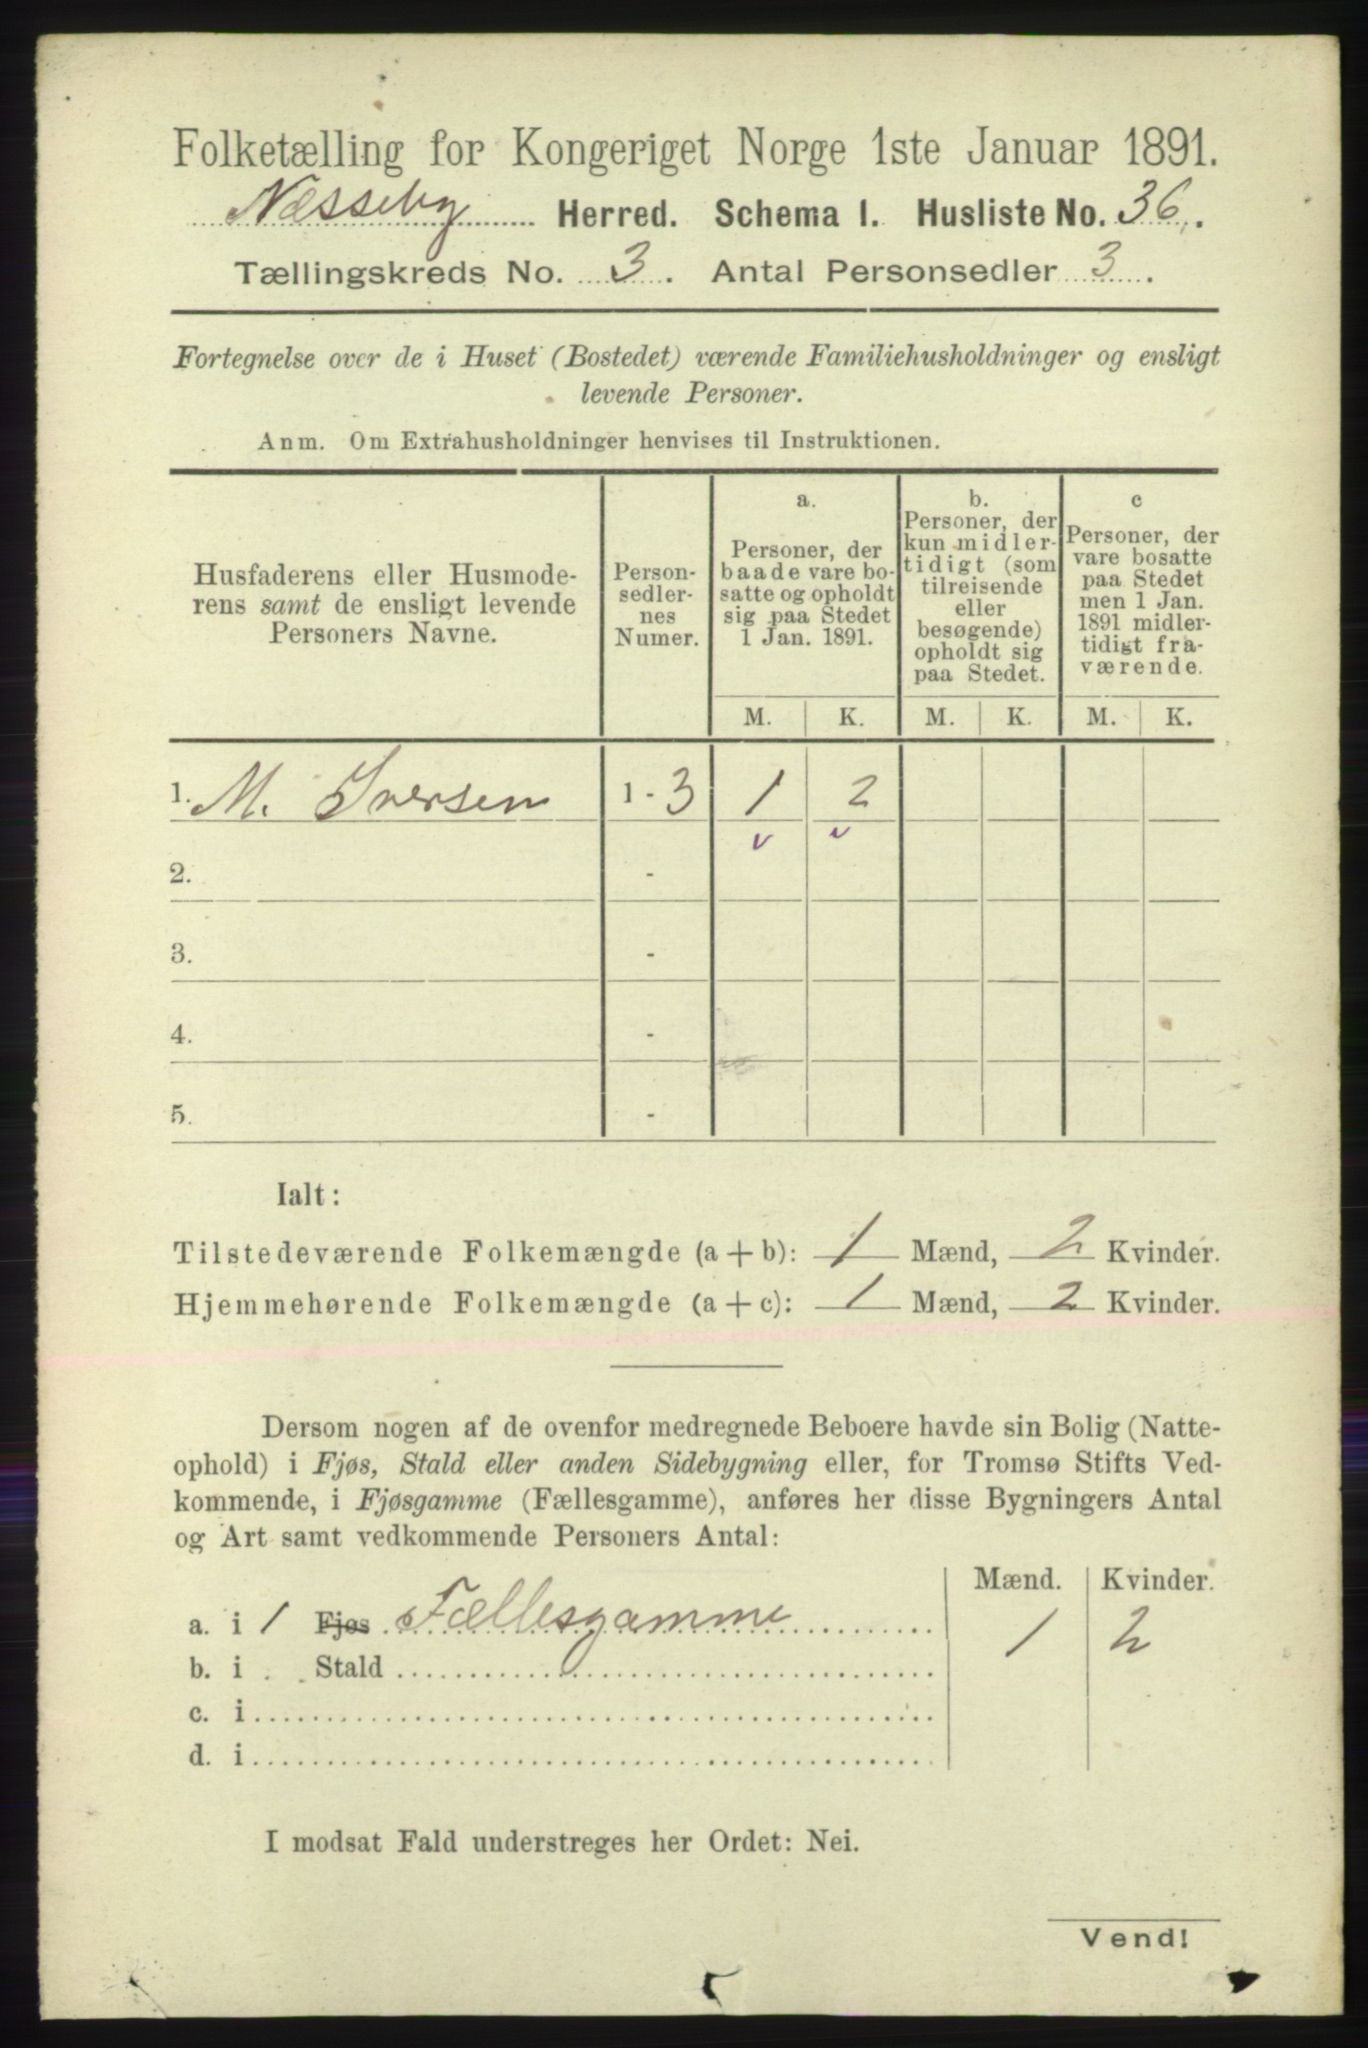 Folketælling for Kongeriget Norge 1ste Januar 1891.
Næsseby Herred. Schema I. Husliste No. 36.
Tællingskreds No. 3. Antal Personsedler 3.
Fortegnelse over de i Huset (Bostedet) værende Familiehusholdninger og ensligt
levende Personer.
Anm. Om Extrahusholdninger henvises til Instruktionen.
Husfaderens eller Husmode-
rens samt de ensligt levende
Personers Navne.
Person-
sedler-
nes
Numer.
a.
Personer, der
baade vare bo-
satte og opholdt
sig paa Stedet
1 Jan. 1891.
b.
Personer, der
kun midler-
tidigt (som
tilreisende
eller
besøgende)
opholdt sig
paa Stedet.
c
Personer, der
vare bosatte
paa Stedet
men 1 Jan.
1891 midler-
tidigt fra-
værende.
M. K. M. K. M. K.
1. M. Iversen 1 - 3 1 2
2. -
3. -
4. -
5. -
Ialt:
Tilstedeværende Folkemængde (a + b): 1 Mænd, 2 Kvinder.
Hjemmehørende Folkemængde (a + c): 1 Mænd, 2 Kvinder.
Dersom nogen af de ovenfor medregnede Beboere havde sin Bolig (Natte-
ophold) i Fjøs, Stald eller anden Sidebygning eller, for Tromsø Stifts Ved-
kommende, i Fjøsgamme (Fællesgamme), anføres her disse Bygningers Antal
og Art samt vedkommende Personers Antal:
Mænd. Kvinder.
a. i 1 Fjøs Fællesgamme 1 2
b. i Stald
c. i
d. i
I modsat Fald understreges her Ordet: Nei.
Vend!